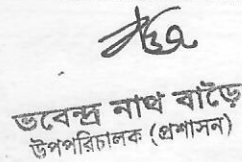 ভবেন্দ্র নাথ বাড়ৈ
উপপরিচালক (প্রশাসন)